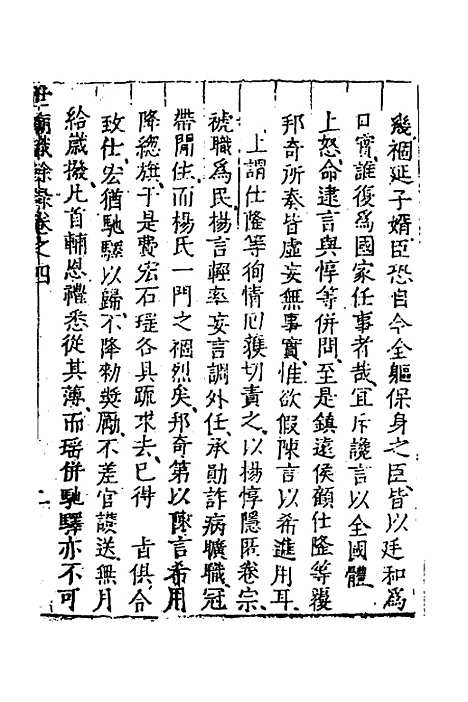 幾禍延子婿臣恐自今全軀保身之臣皆以廷和爲
口實誰復爲國家任事者哉宜斥讒言以全國體
上怒命逮言與惇等併問至是鎮遠侯顧仕隆等覆
邦奇所奏皆虛妄無事實惟欲假陳言以希進用耳
上謂仕隆等徇情回護切責之以楊惇隱匿卷宗
褫職爲民楊言輕率妄言調外任承勛詐病曠職冠
帶閒住而楊氏一門之禍烈矣邦奇第以陳言希用
降總旗于是費宏石瑶各具疏求去已得 旨俱合
致仕宏猶馳驛以歸不降勅獎勵不差官護送無月
給歲撥凡首輔恩禮悉從其薄而瑶併馳驛亦不可
世廟識餘錄卷之四